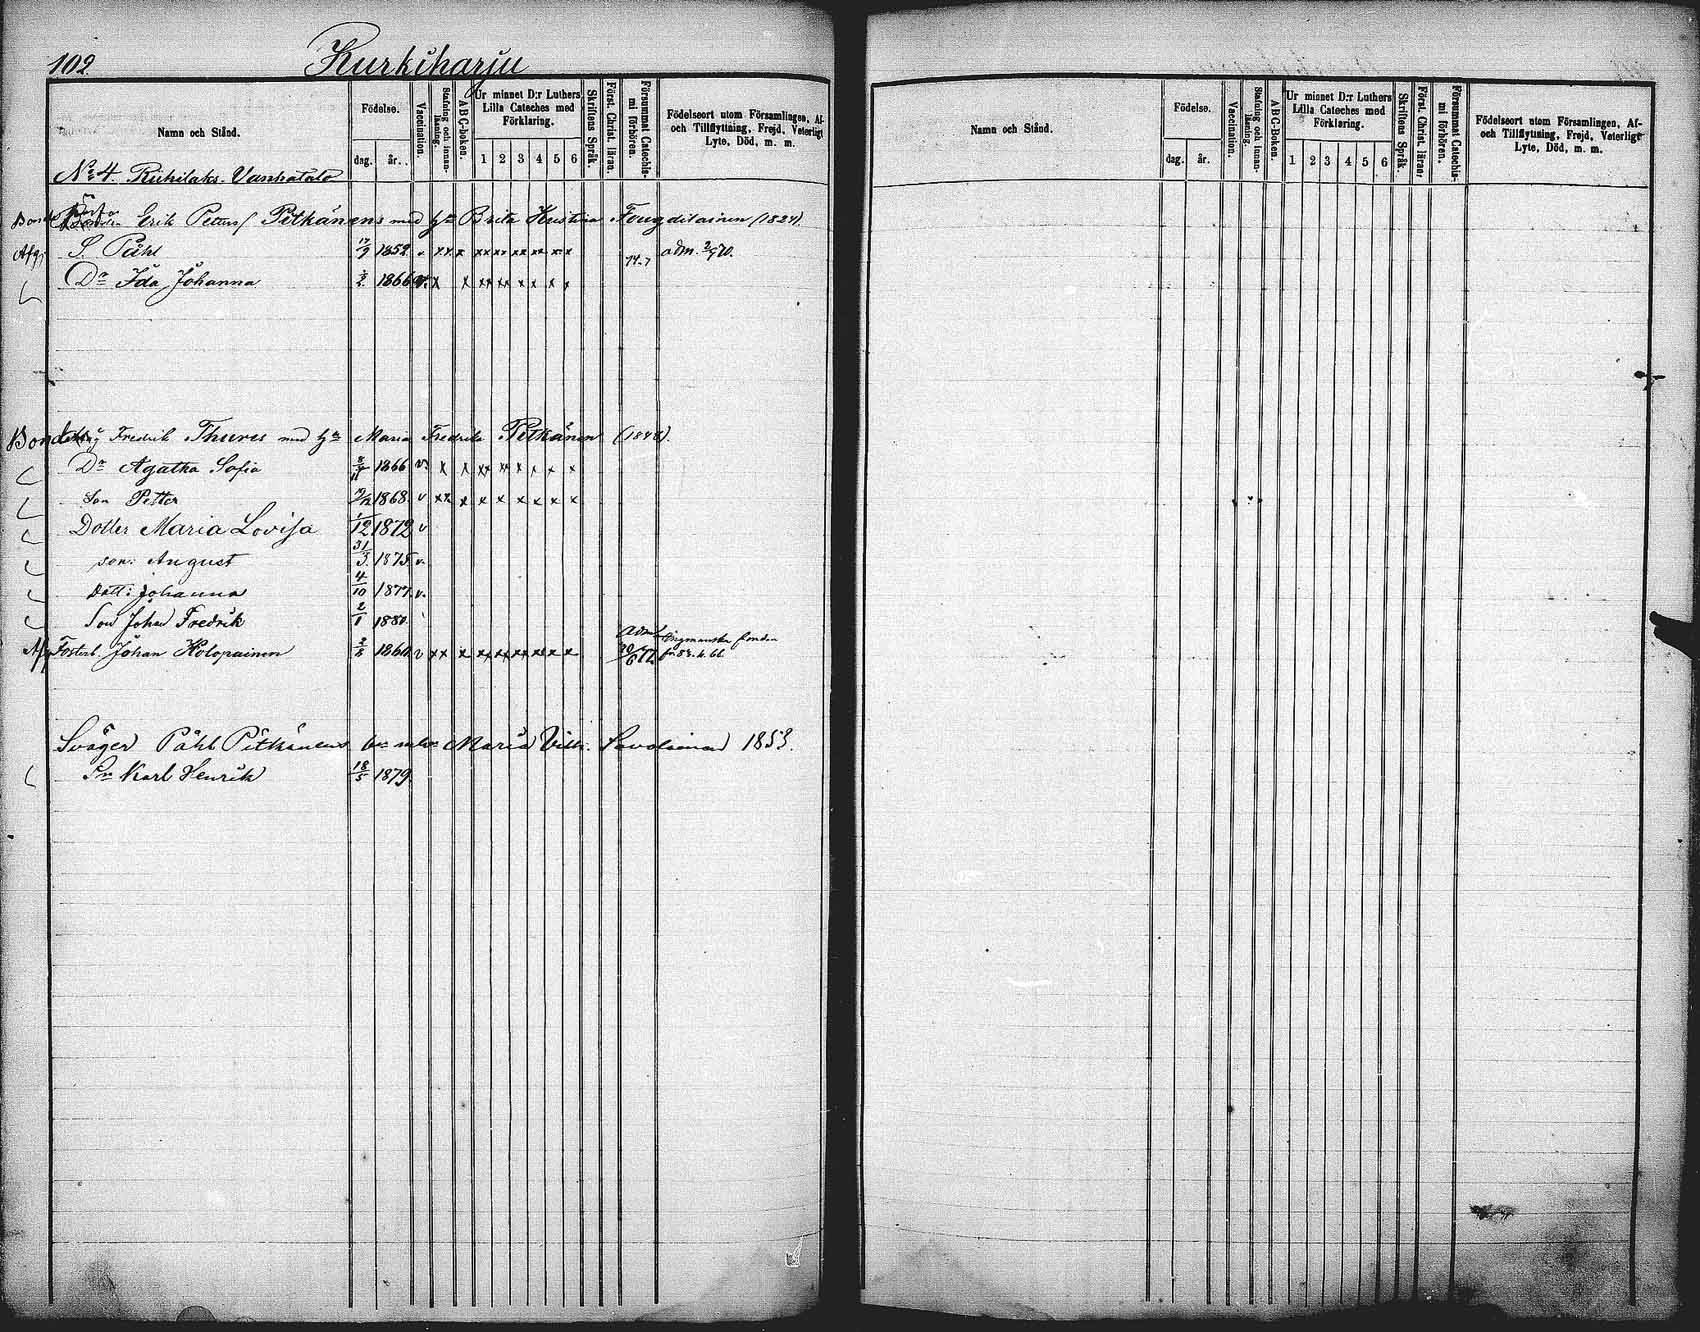 102
Kurkiharju
Namn och Stånd.
Födelse.
dag.
år.
Vaccination.
Stafning och innan-läsning.
ABC-boken.
Ur minnet D:r Luthers
Lilla Cateches med
Förklaring.
1 2 3 4 5 6
Skriftens Språk.
Först. Christ. läran.
Försummat Catechis-
mi förhören.
Födelseort utom Församlingen, Af-
och Tillflyttning, Frejd, Veterligt
Lyte, Död, m. m.
No 4. Riihilaks. Vanhatalo
Erik Petters Pitkänens med hu Brita Kristina (1824).
Afg. S. Påhl 17/9 1852. v xx x xx xx xx xx x x 74-7 adm. 2/9 70.
Dr Ida Johanna 1866 v. x x xx xx x x x x
Bonde Fredrik Thures med hu Maria Fredrika Pitkänen (1848).
Dr Agatha Sofia 1866 v. x x xx xx x x x x
Son Petter 1868. v xx x x x x x x x
Dotter Maria Lovisa 1/12 1872 v
son: August 31/3 1875. v.
Dott: Johanna 4/10 1877. v.
Son Johan Fredrik 2/1 1880.
Fosterb. Johan Kolopainen 1860 v xx x xx xx xx xx x x
Svåger Påhl Pitkänens Maria Vilh. Savolainen 1853.
Sn Karl Henrik 18/5 1879.
Namn och Stånd.
Födelse.
dag.
år.
Vaccination.
Stafning och innan-läsning.
ABC-Boken.
Ur minnet D:r Luthers
Lilla Cateches med
Förklaring.
1 2 3 4 5 6
Skriftens Språk.
Först. Christ. läran.
Försummat Catechis-
mi förhören.
Födelseort utom Församlingen, Af-
och Tillflyttning, Frejd, Veterligt
Lyte, Död, m. m.